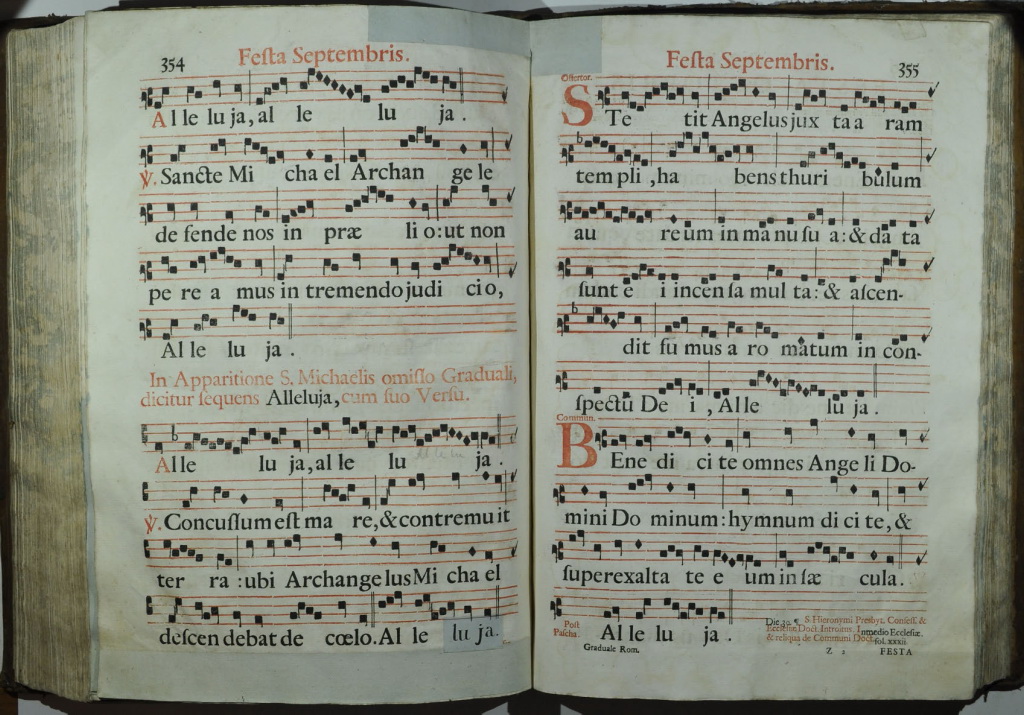 354
Feſta Septembris.
Al le lu ja, al le lu ja.
℣. Sancte Mi cha el Archan ge le
de fende nos in præ li o: ut non
pe re a mus in tremendo judi ci o,
Al le lu ja.
In Apparitione S. Michaelis omiſſo Graduali,
dicitur ſequens Alleluja, cum ſuo Verſu.
Al le lu ja, al le lu ja.
℣. Concuſſum eſt ma re, & contremu it
ter ra: ubi Archange lus Mi cha el
deſcen debat de cœlo. Al le lu ja.
Feſta Septembris.
355
Offertor.
STe tit Angelus jux ta a ram
tem pli, ha bens thuri bulum
au re um in ma nu ſu a: & da ta
ſunt e i incen ſa mul ta: & aſcen-
dit fu mus a ro matum in con-
ſpectū De i, Al le lu ja.
Commun.
BEne di ci te omnes Ange li Do-
mini Do minum: hymnum di ci te, &
ſuperexalta te e um in ſæ cula.
Poſt Paſcha.
Al le lu ja.
Die 30. S. Hieronymi Presbyt. Confeſſ. &
Eccleſiæ Doct. Introitus. In medio Eccleſiæ.
& reliqua de Communi Doct. fol. xxxij.
Graduale Rom.
Z 2
FESTA